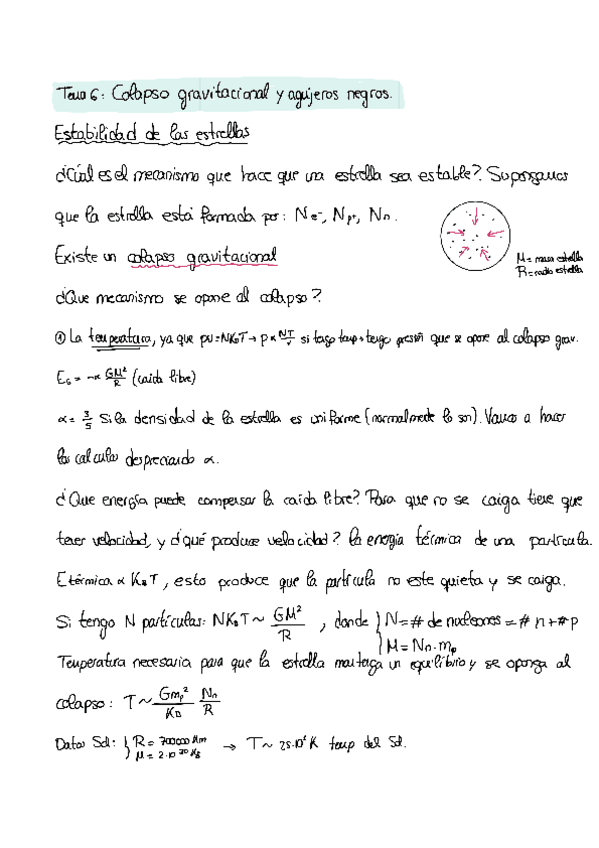 Tema 6: Colapso gravitacional y agujeros negros.
Estabilidad de las estrellas
¿Cúal es el mecanismo que hace que una estrella sea estable?. Supongamos
que la estrella está formada por: Ne⁻, Np⁺, Nn.
M = masa estrella
R = radio estrella
Existe un colapso gravitacional
¿Que mecanismo se opone al colapso?
① La temperatura, ya que pV=NKBT → p ∝ NT/V si tengo temp → tengo presión que se opone al colapso grav.
EG = -α GM²/R (caida libre)
α = 3/5 si la densidad de la estrella es uniforme (normalmente lo son). Vamos a hacer
los calculos despreciando α.
¿Que energía puede compensar la caida libre? Para que no se caiga tiene que
tener velocidad, y ¿qué produce velocidad? la energía térmica de una partícula.
Etérmica ∝ KBT, esto produce que la partícula no este quieta y se caiga.
Si tengo N partículas: NKBT ~ GM²/R, donde { N = # de nucleones = # n + # p
M = Nn·mp
Temperatura necesaria para que la estrella mantenga un equilibrio y se oponga al
colapso: T ~ Gmp²/KB Nn/R
Datos Sol: { R = 700000 Km
M = 2·10³⁰ Kg → T ~ 25·10⁶ K temp del Sol.